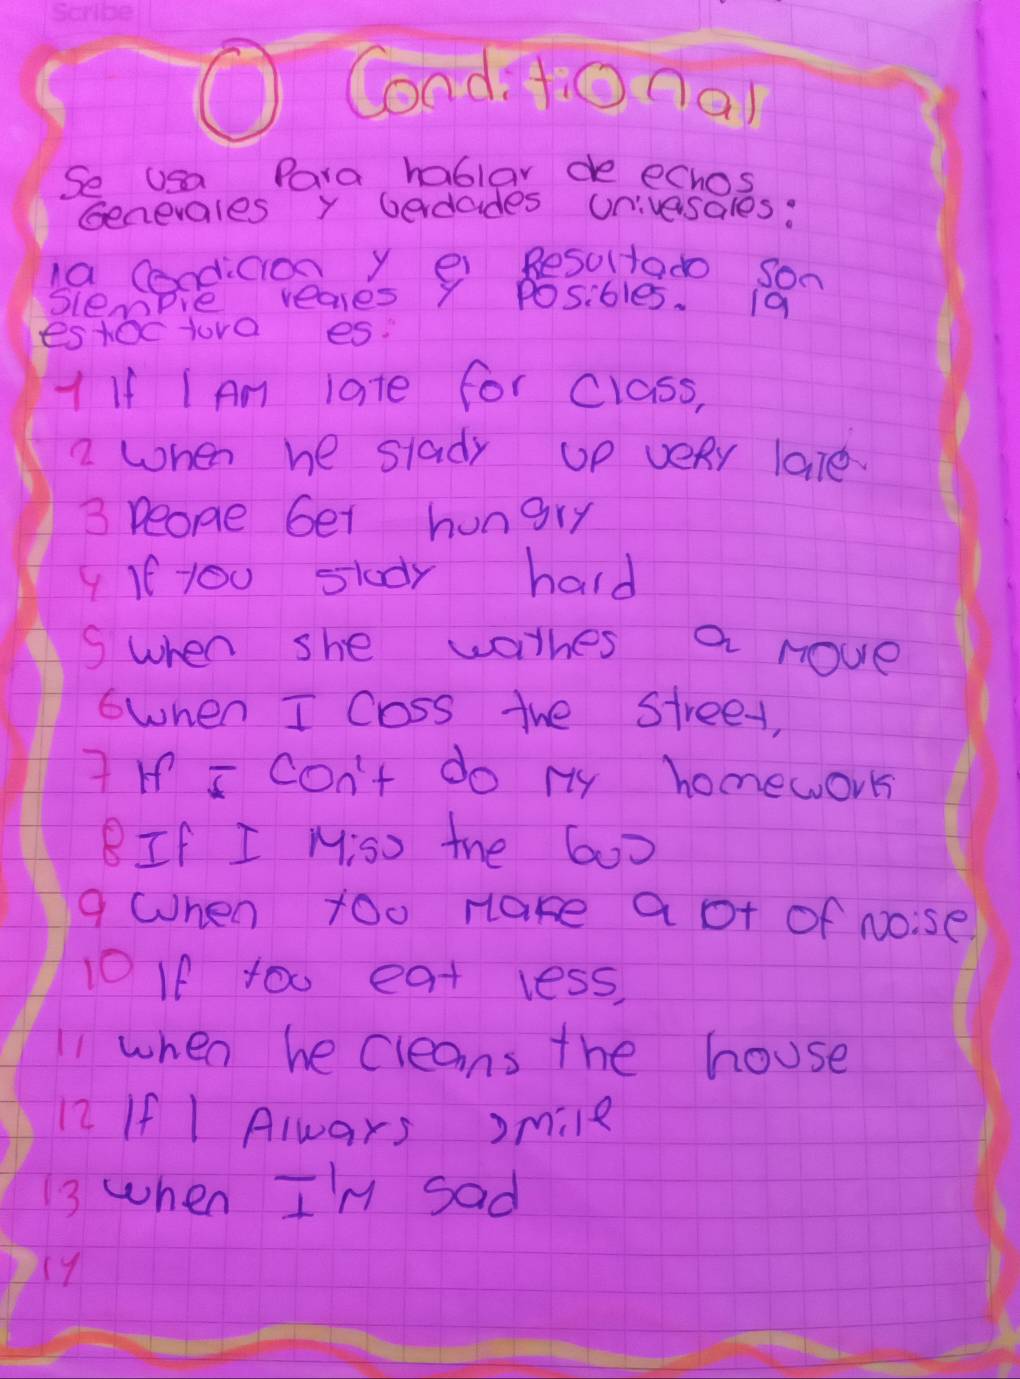 Scribe
0 Conditional
Se usa Para hablar de echos
Generales y berdades universales:
la Condicion y el Resultado son
Siempre reales y Posibles. la
estroctura es:
1 If I AM late for Class,
2 when he stady up veRy late
3 People Get hungry
4 If you study hard
5 when she wathes a move
6 when I Coss the street,
7 If I Con't do My homework
8 If I Miss the bus
9 when you Make a ot of Noise
10 If you eat less,
11 when he cleans the house
12 If I Always smile
13 when I'M sad
14